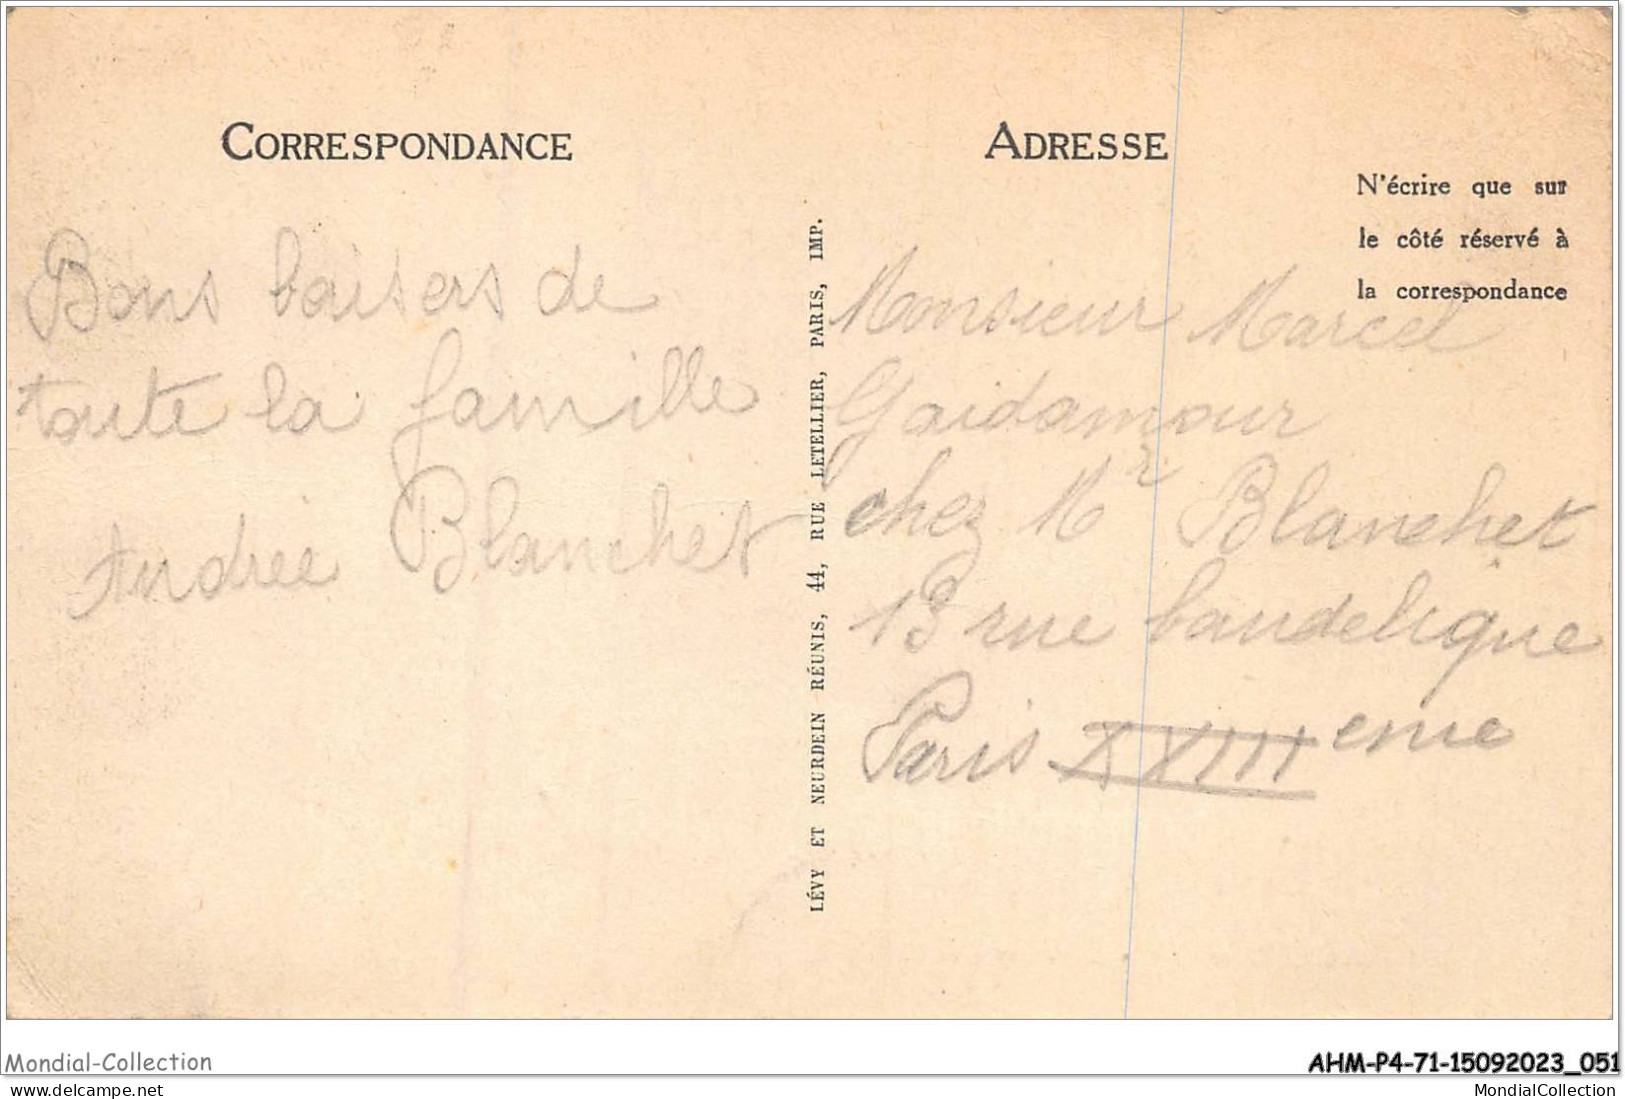 CORRESPONDANCE
ADRESSE
N'écrire que sur
le côté réservé à
la correspondance
Bons baisers de
toute la famille
Andrée Blanchet
LÉVY ET NEURDEIN RÉUNIS, 44, RUE LETELLIER, PARIS, IMP.
Monsieur Marcel
Gaidamour
chez Mr Blanchet
13 rue baudelique
Paris XVIIIeme
Mondial-Collection
AHM-P4-71-15092023_051
pour delcampe.net
MondialCollection